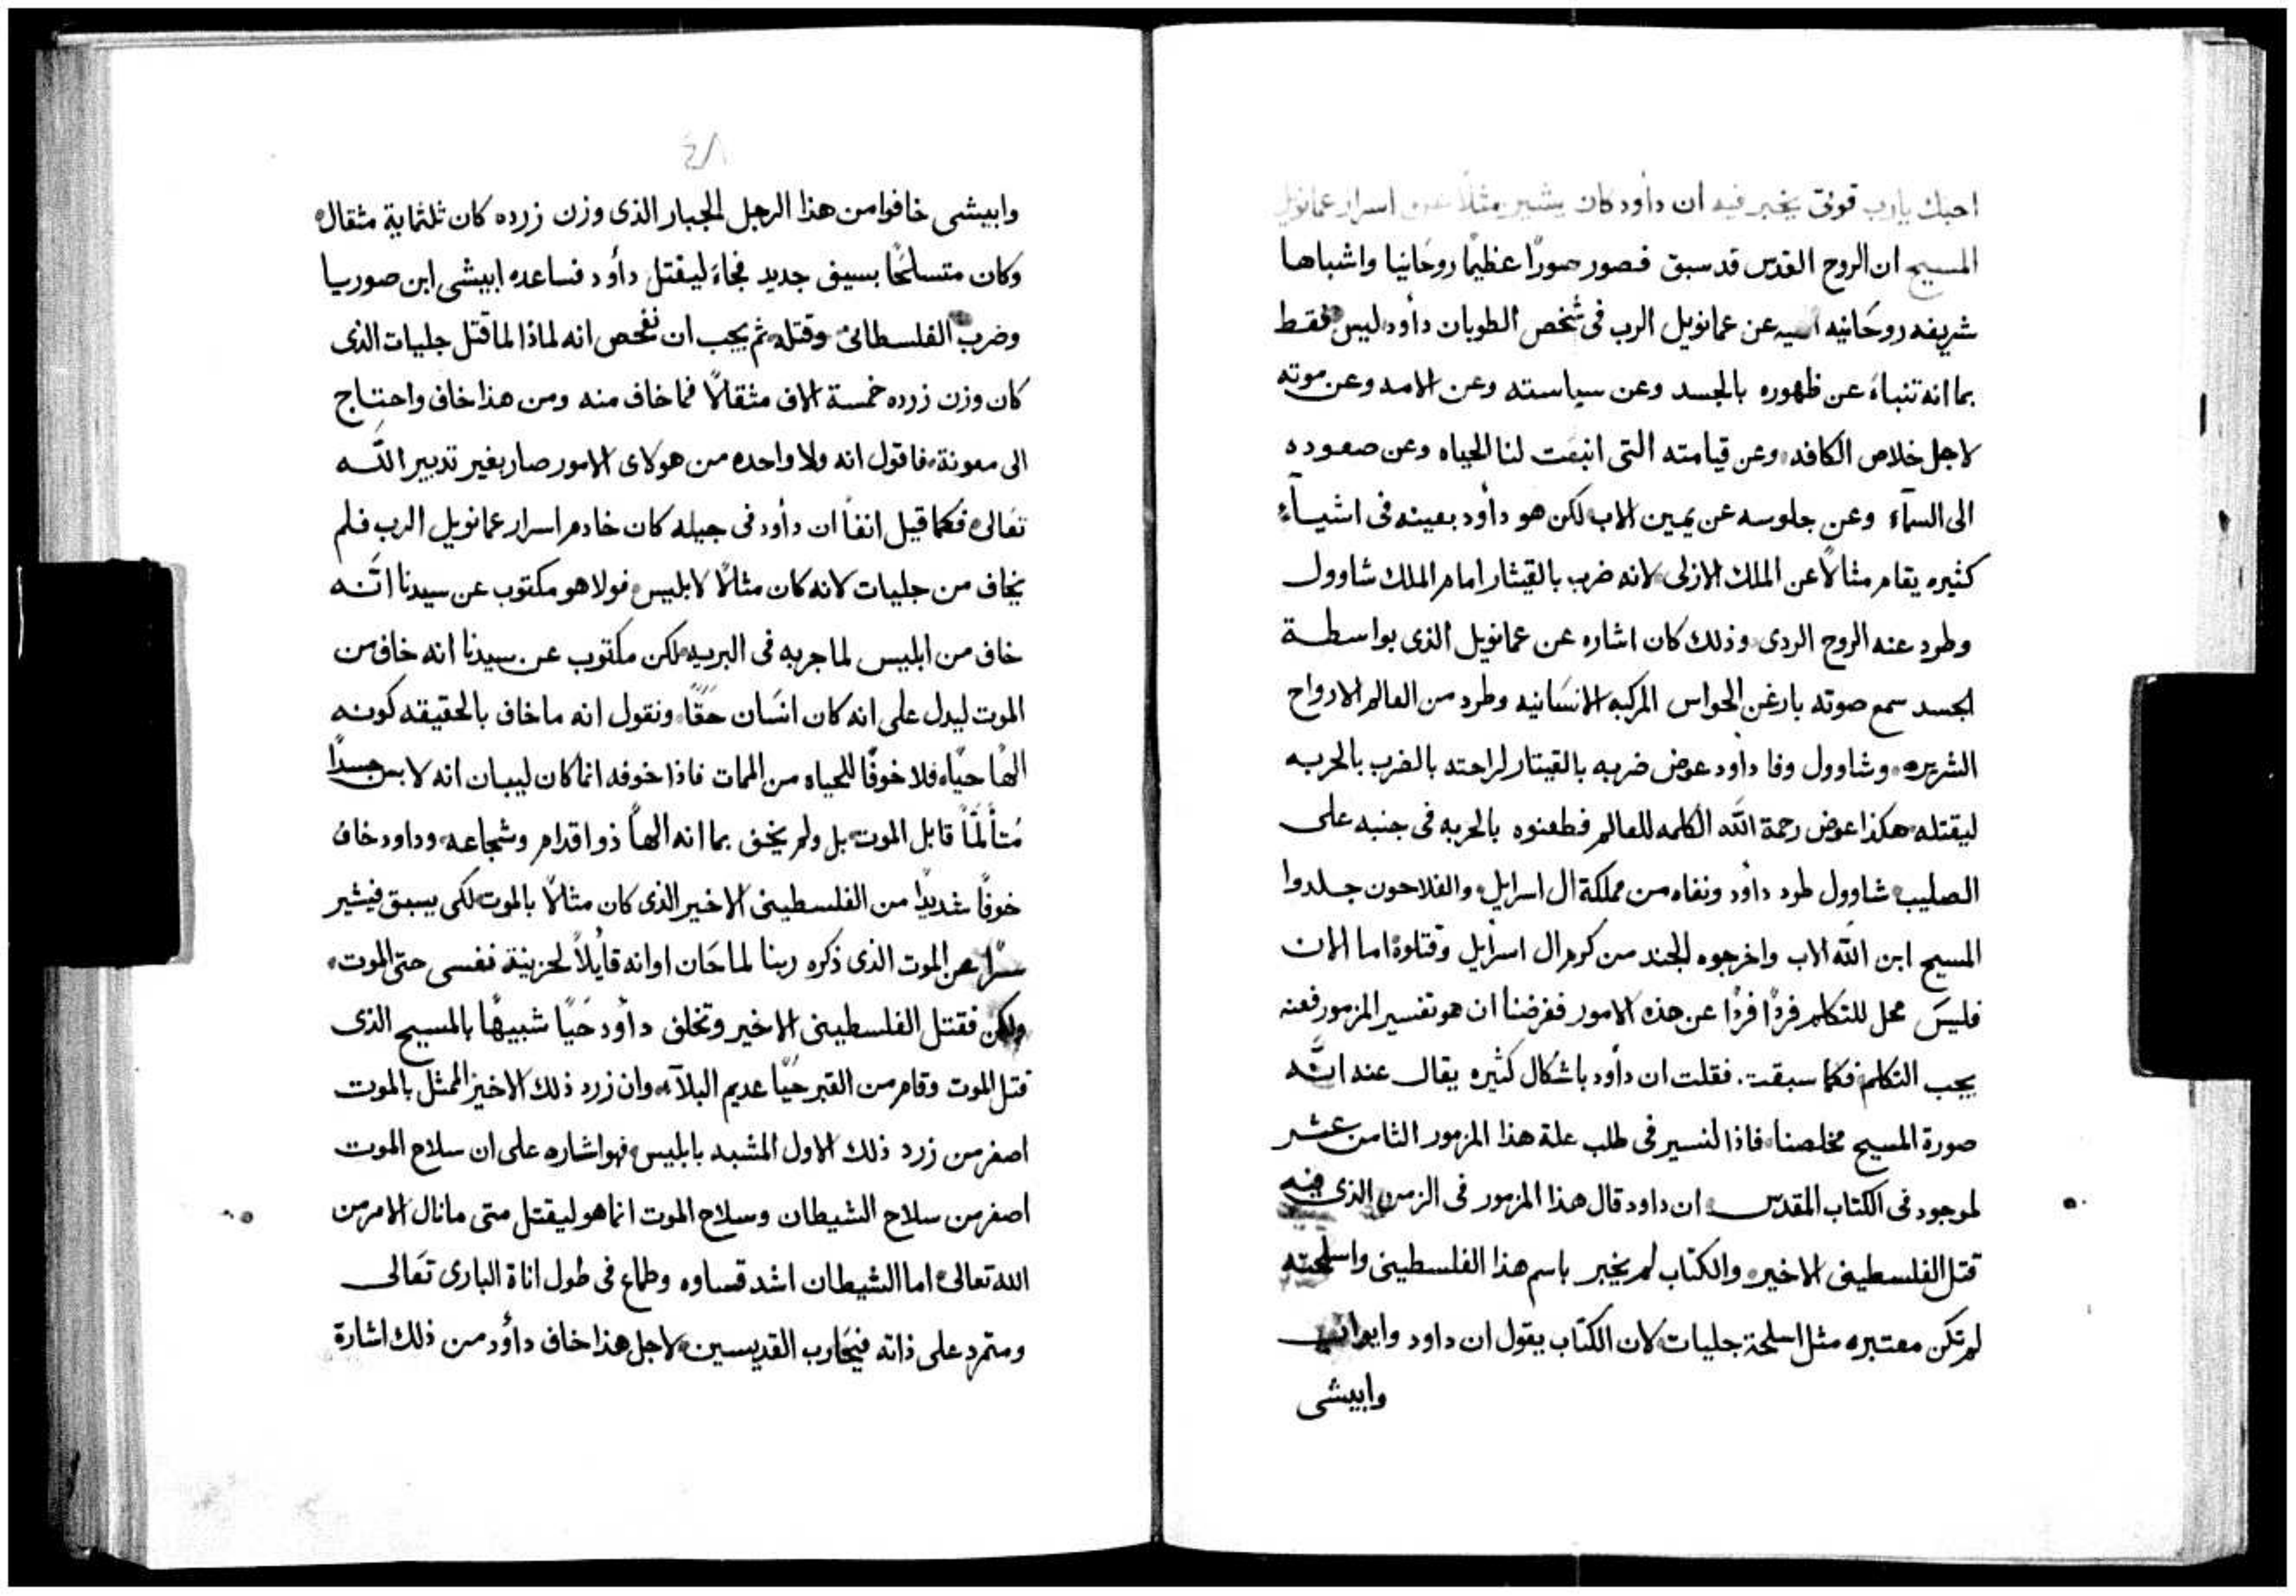 احبك يارب قوتى يخبر فيه ان دأود كان يشير مثلاً عن اسرار عمانويل
المسيح ان الروح القدس قد سبق فصور صورًا عظيمًا روحَانيا واشباها
شريفه روحَانيه عن عمانويل الرب فى شخص الطوبان دأود ليس فقط
بما انه تنباءَ عن ظهوره بالجسد وعن سياسته وعن الامه وعن موته
لاجل خلاص الكافه وعن قيامته التى انبعَت لنا الحياه وعن صعوده
الى السمآء وعن جلوسه عن يمين الاب لكن هو دأود بعينه فى اشيآء
كثيره يقام مثالاً عن الملك الازلى لانه ضرب بالقيثار امام الملك شاوول
وطرد عنه الروح الردى وذلك كان اشاره عن عمانويل الذى بواسطة
الجسد سمع صوته بارغن الحواس المركبه الانسَانيه وطرد من العالم الارواح
الشريره وشاوول وفا داود عوض ضربه بالقيتار لراحته بالضرب بالحربه
ليقتله هكذا عوض رحمة الله الكلمه للعالم فطعنوه بالحربه فى جنبه على
الصليب شاوول طرد دأود ونفاه من مملكة ال اسرايل والفلاحون جلدوا
المسيح ابن الله الاب واخرجوه الجند من كرم ال اسرأيل وقتلوه اما الان
فليسَ محل للتكلم فردًا فردًا عن هذه الامور ففرضنا ان هو تفسير المزمور فعنه
يجب التكلم فكما سبقت. فقلت ان دأود باشكال كثيره يقال عنه انَّه
صورة المسيح مخلصنا فاذا لنسير فى طلب علة هذا المزمور الثامن عشر
لموجود فى الكتاب المقدس ان داود قال هذا المزمور فى الزمن الذى فيه
قتل الفلسطينى الاخير والكتاب لم يخبر باسم هذا الفلسطينى واسلحته
لم تكن معتبره مثل اسلحة جليات لان الكتاب يقول ان داود
وابيشى
٤٨
وابيشى خافوا من هذا الرجل الجبار الذى وزن زرده كان ثلثماية مثقال
وكان متسلحًا بسيف جديد فجاءَ ليقتل دأود فساعده ابيشى ابن صوريا
وضرب الفلسطانى وقتله ثم يجب ان نفحص انه لماذا لما قتل جليات الذى
كان وزن زرده خمسة الاف مثقالاً فما خاف منه ومن هذا خاف واحتاج
الى معونة فاقول انه ولا واحده من هولاى الامور صار بغير تدبير الله
تعَالى فكما قيل انفاً ان دأود فى جيله كان خادم اسرار عمانويل الرب فلم
يخاف من جليات لانه كان مثالاً لابليس فولا هو مكتوب عن سيدنا انَّه
خاف من ابليس لما جربه فى البريه لكن مكتوب عن سيدنا انه خاف من
الموت ليدل على انه كان انسَان حَقًا ونقول انه ما خاف بالحقيقه كونه
الهًا حيًا فلا خوفًا للحياه من الممات فاذا خوفه انما كان ليبان انه لابس جسدًا
مُتألمًا قابل الموت بل ولم يخف بما انه الهاً ذو اقدام وشجاعه وداود خاف
خوفًا شديدًا من الفلسطينى الاخير الذى كان مثالاً بالموت لكى يسبق فيشير
سرًا عن الموت الذى ذكره ربنا لما حَان اوانه قايلاً لحزينة نفسى حتى الموت
ولكن فقتل الفلسطينى الاخير وتخلف دأود حَيًا شبيهًا بالمسيح الذى
قتل الموت وقام من القبر حَيًا عديم البلآء وان زرد ذلك الاخيز الممثل بالموت
اصغر من زرد ذلك الاول المشبه بابليس فهو اشاره على ان سلاح الموت
اصغر من سلاح الشيطان وسلاح الموت انما هو ليقتل متى ما نال الامر من
الله تعالى اما الشيطان اشد قساوه وطماع فى طول اناة البارى تعَالى
ومتمرد على ذاته فيحَارب القديسين لاجل هذا خاف دأود من ذلك اشارة